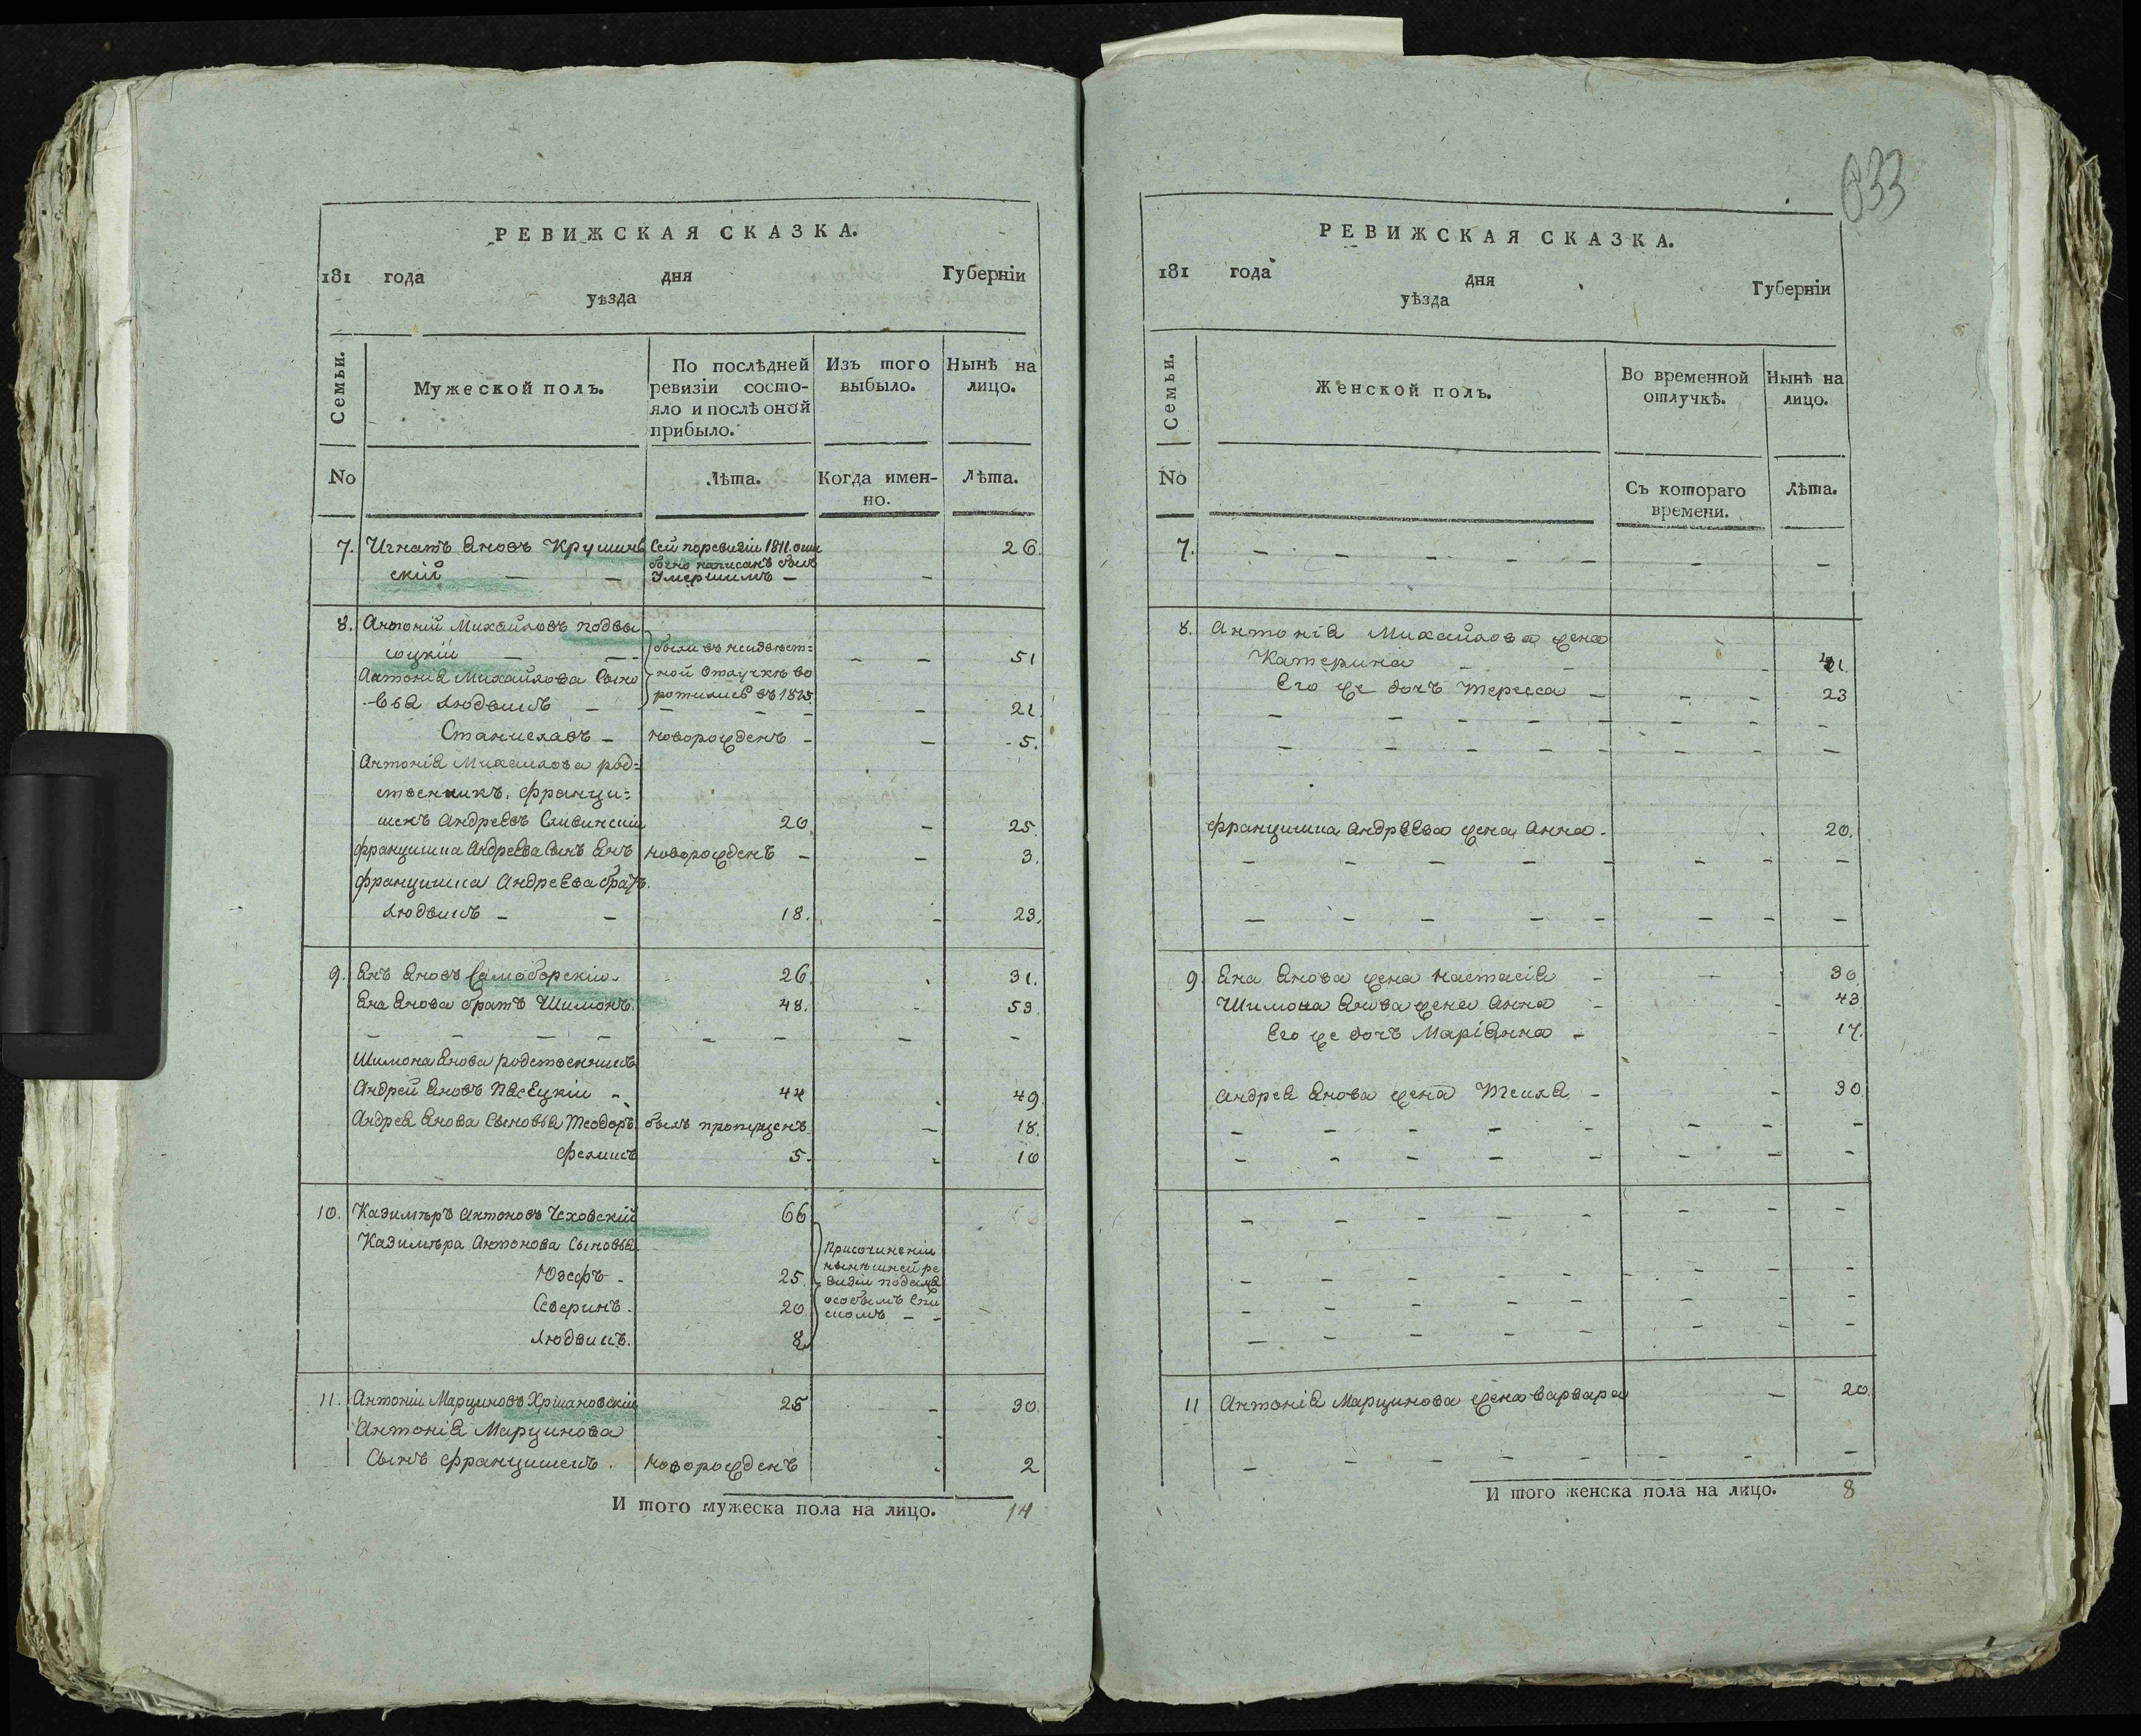 РЕВИЖСКАЯ СКАЗКА.
181 года дня Губернїи
уѣзда
Семьи.
Мужеской полъ.
По послѣдней ревизїи состо-
яло и послѣ оной
прибыло.
Изъ того
выбыло.
Нынѣ на
лицо.
No
Лѣта.
Когда имен-
но.
Лѣта.
7. Игнатъ Яновъ Крушинь Сей поревизіи 1811. оши 26.
скій — — бочно написанъ былъ
Умершимъ — —
8. Антоній Михайловъ Подвы
соцкіи — — были въ неизвѣст= — — 51
Антонія Михайлова Сыно ной отлучкѣ во
-вья Людвикъ — ротились въ 1815 — 21
Станиславъ — новорожденъ — — 5.
Антонія Михаилова род=
ственникъ. Франци=
шекъ Андреевъ Сливинскіи 20 — 25.
Францишка Андреева Сынъ Янъ новорожденъ — — 3.
Францишка Андреева братъ.
Людвикъ — — 18. — 23.
9. Янъ Яновъ Самоборскіи. 26. 31.
Яна Янова братъ Шимонъ. 48. 53
— — — — — — — —
Шимона Янова родственникъ
Андрей Яновъ Пясецкіи — 44 49.
Андрея Янова Сыновья Теодоръ былъ пропущенъ — 18.
Феликсъ 5. 10
10. Казимѣръ Антоновъ Чеховскій 66
Казимѣра Антонова Сыновья. Присочиненіи
Юзефъ — 25. нынѣшней ре
визіи подана
Северинъ. 20 особымъ Спи
скомъ — —
Людвикъ. 8
11. Антоніи Марциновъ Хршановскіи 25 — 30.
Антонія Марцинова
Сынъ Францишекъ. новорожденъ 2
И того мужеска пола на лицо. 14
633
РЕВИЖСКАЯ СКАЗКА.
181 года дня Губернїи
уѣзда
Семьи.
Женской полъ.
Во временной
отлучкѣ.
Нынѣ на
лицо.
No
Съ котораго
времени.
Лѣта.
7. — — — — — —
8. Антонія Михайлова жена
Катерина — — —
Его же дочь Тереса — — — 23
— — — — — — — —
— — — — — — — —
Францишка Андреева жена Анна. 20.
— — — — — — — —
— — — — — — — —
9 Яна Янова жена Настасія — — 30.
Шимона Янова жена Анна — — 43
Его же дочь Маріянна — — 17.
Андрея Янова жена Текля — — 30
— — — — — — — —
— — — — — — — —
— — — — — — — —
— — — — — — — —
— — — — — — — —
— — — — — — — —
11 Антонія Марцинова жена Варвара — 20
— — — — — — — —
И того женска пола на лицо. 8